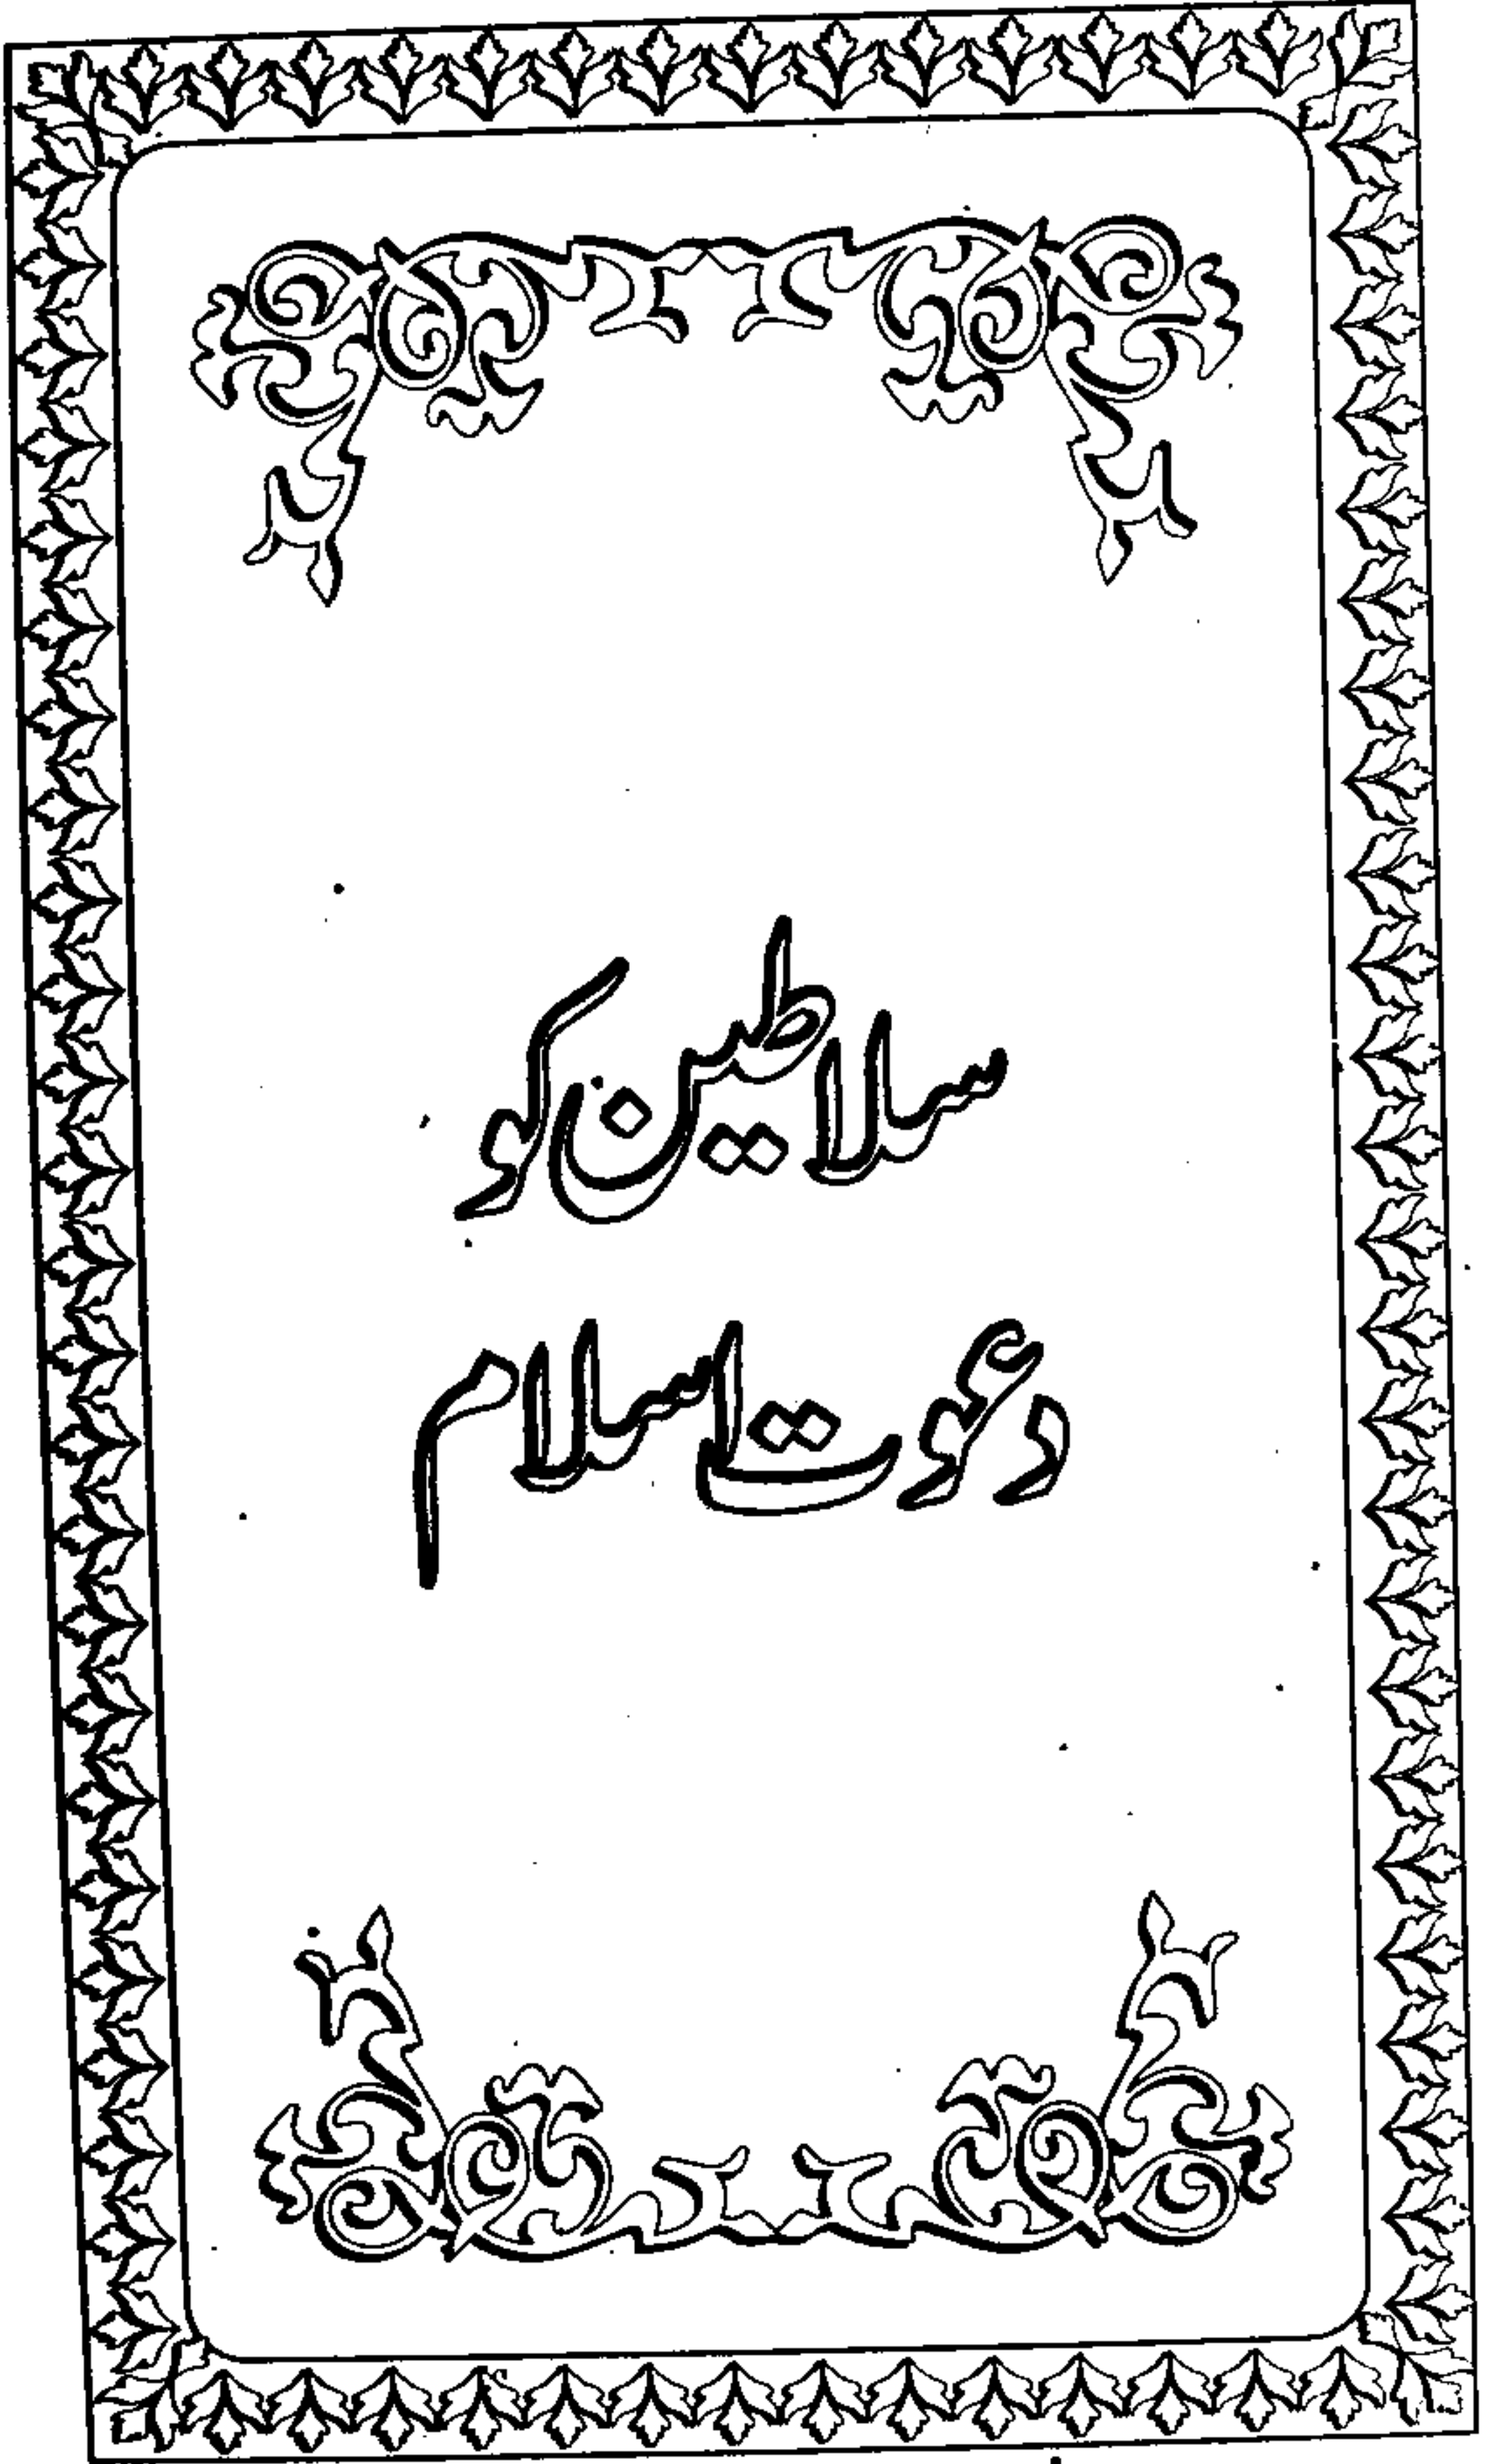 سلاطین کو
دعوت اسلام